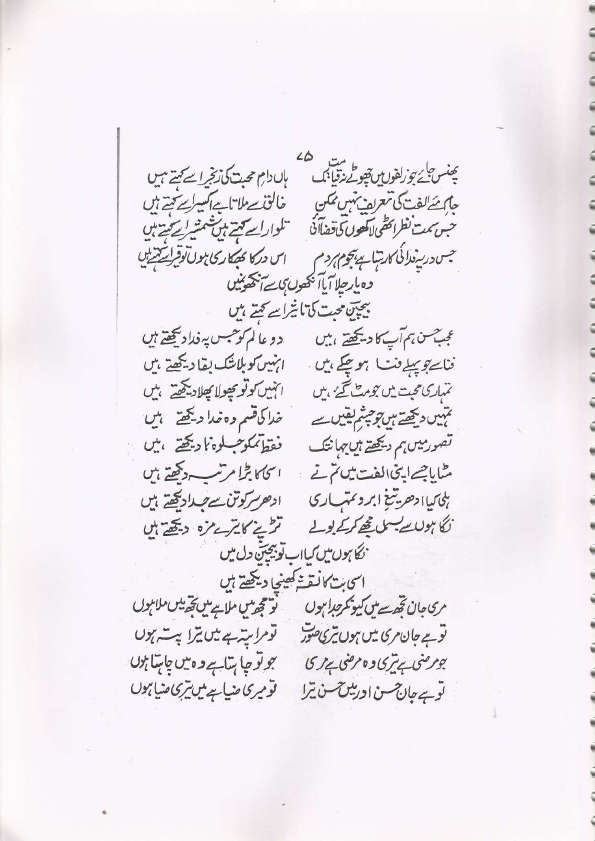 ۷۵
پھنس جائے جو زلفوں میں چھوٹے نہ قیامت تک ہاں دامِ محبت کی زنجیر اسے کہتے ہیں
جامِ مئے الفت کی تعریف نہیں ممکن خالق سے ملاتا ہے اکسیر اسے کہتے ہیں
جس سمت نظر اٹھی لاکھوں کی قضا آئی تلوار اسے کہتے ہیں شمشیر اسے کہتے ہیں
جس در پہ فدائی کا رہتا ہے ہجوم ہر دم اس در کا بھکاری ہوں توقیر اسے کہتے ہیں
وہ یار چلا آیا آنکھوں ہی سے آنکھوں میں
بیچین محبت کی تاثیر اسے کہتے ہیں
عجب حسن ہم آپ کا دیکھتے ہیں دو عالم کو جس پہ فدا دیکھتے ہیں
فنا سے جو پہلے فنا ہو چکے ہیں انہیں کو بلا شک بقا دیکھتے ہیں
تمہاری محبت میں جو مٹ گئے ہیں انہیں کو تو پھولا پھلا دیکھتے ہیں
تمہیں دیکھتے ہیں جو چشمِ یقیں سے خدا کی قسم وہ خدا دیکھتے ہیں
تصور میں ہم دیکھتے ہیں جہانتک فقط تمکو جلوہ نما دیکھتے ہیں
مٹایا جسے اپنی الفت میں تم نے اسی کا بڑا مرتبہ دیکھتے ہیں
ہلی کیا ادھر تیغِ ابرو تمہاری ادھر سر کو تن سے جدا دیکھتے ہیں
نگاہوں سے بسمل مجھے کرکے بولے تڑپنے کا تیرے مزہ دیکھتے ہیں
نگاہوں میں کیا اب تو بیچین دل میں
اسی بت کا نقشہ کھینچا دیکھتے ہیں
مری جان تجھ سے میں کیونکر جدا ہوں تو مجھ میں ملا ہے میں تجھ میں ملا ہوں
تو ہے جان مری میں ہوں تیری صورت تو مرا پتہ ہے میں ترا پتہ ہوں
جو مرضی ہے تیری وہ مرضی ہے مری جو تو چاہتا ہے وہ میں چاہتا ہوں
تو ہے جان حسن اور میں حسن ترا تو میری ضیا ہے میں تیری ضیا ہوں